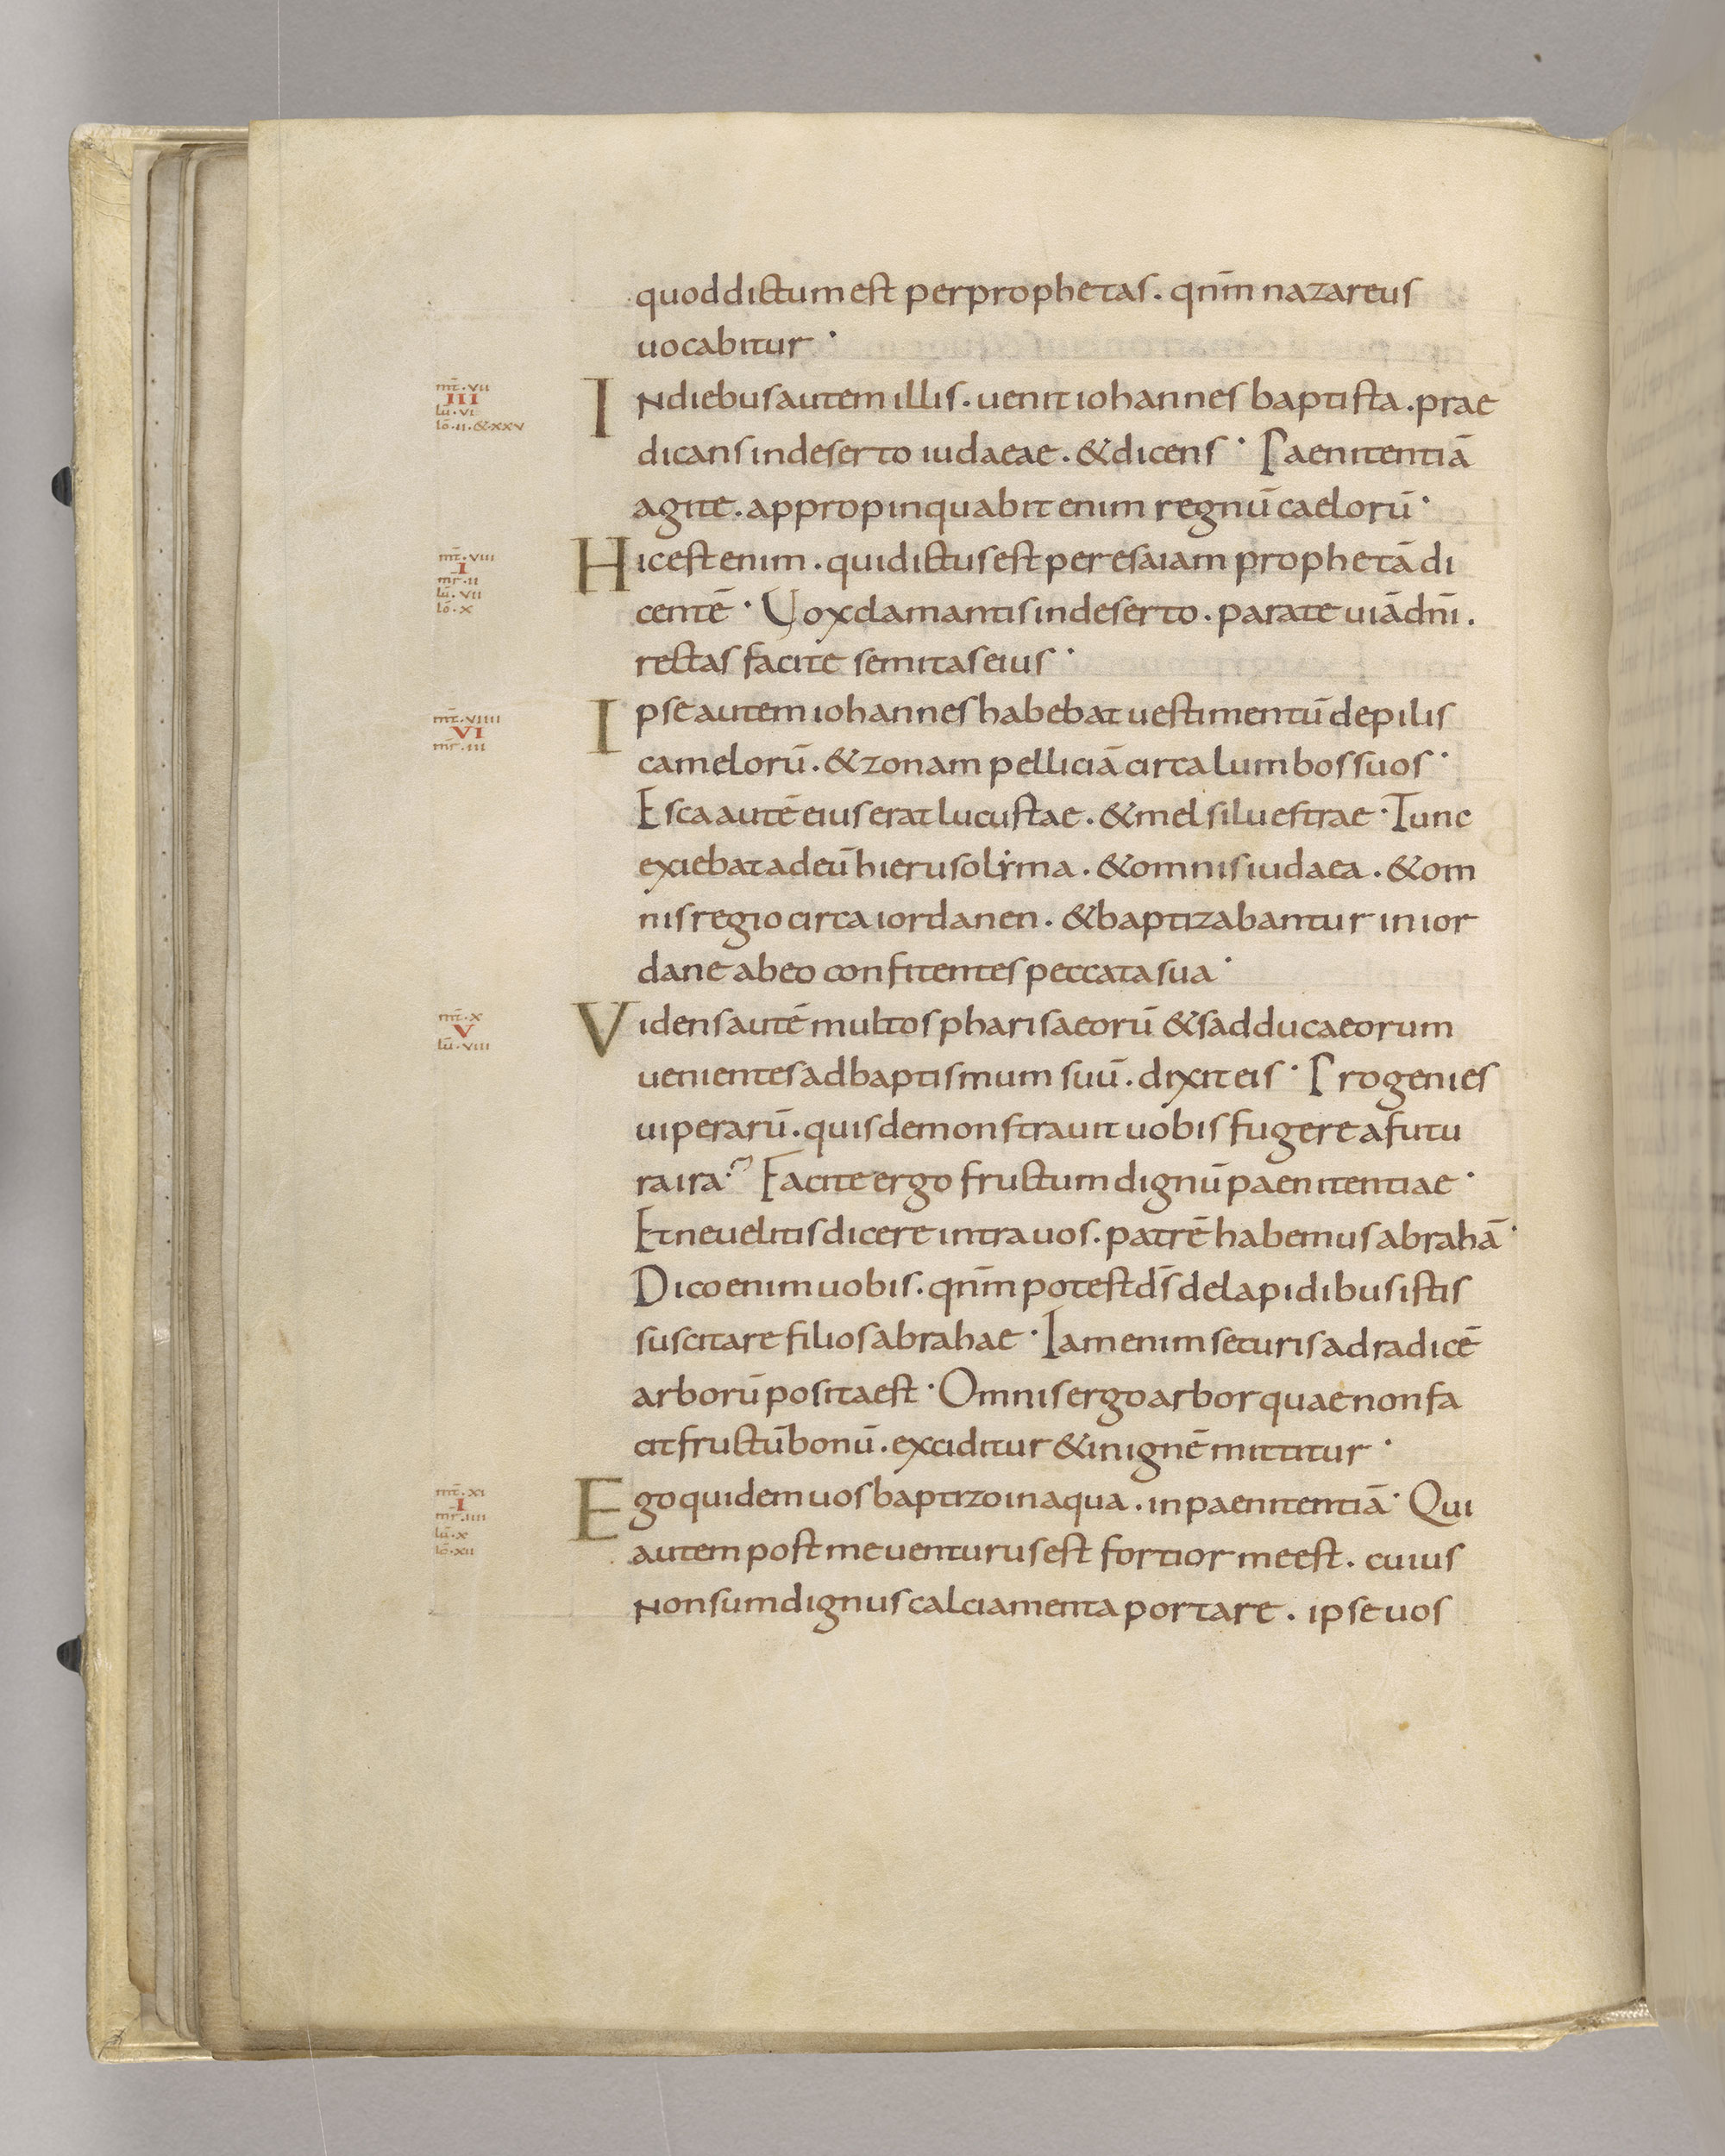 quod dictum est per prophetas. qnm̄ nazareus
uocabitur·
mt̄·vii
III
lū·vi
iō·ii·&xxv
In diebus autem illis. uenit iohannes baptista. prae
dicans in deserto iudaeae. & dicens· Paenitentiā
agite. appropinquabit enim regnū caelorū·
mt̄·viii
I
mr̄·ii
lū·vii
iō·x
Hic est enim. qui dictus est per esaiam prophetā di
centē· Uox clamantis in deserto. parate uiā dn̄i.
rectas facite semitas eius·
mt̄·viiii
VI
mr̄·iii
Ipse autem iohannes habebat uestimentū de pilis
camelorū. & zonam pelliciā circa lumbos suos·
Esca autē eius erat lucustae. & mel siluestrae· Tunc
exiebat ad eū hierusolẏma. & omnis iudaea. & om
nis regio circa iordanen. & baptizabantur in ior
dane ab eo confitentes peccata sua·
mt̄·x
V
lū·viii
Videns autē multos pharisaeorū & sadducaeorum
uenientes ad baptismum suū. dixit eis· Progenies
uiperarū. quis demonstrauit uobis fugere a futu
ra ira? Facite ergo fructum dignū paenitentiae·
Et ne uelitis dicere intra uos. patrē habemus abrahā·
Dico enim uobis. qnm̄ potest ds̄ de lapidibus istis
suscitare filios abrahae· Iam enim securis ad radicē
arborū posita est· Omnis ergo arbor quae non fa
cit fructū bonū. exciditur & in ignē mittitur·
mt̄·xi
I
mr̄·iiii
lū·x
iō·xii
Ego quidem uos baptizo in aqua. in paenitentiā· Qui
autem post me uenturus est fortior me est. cuius
non sum dignus calciamenta portare. ipse uos